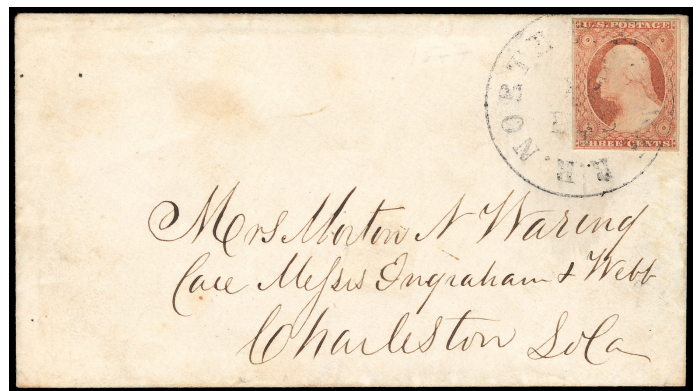 U.S. POSTAGE
THREE CENTS
R.R. NORTE
Mrs Morton N Waring
Care Messrs Ingraham & Webb
Charleston So Ca